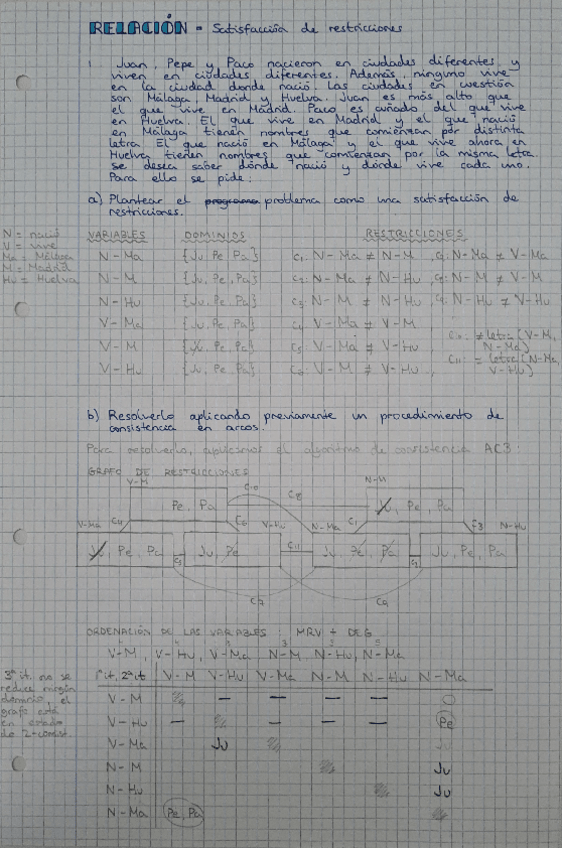 RELACIÓN - Satisfacción de restricciones
1 Juan, Pepe y Paco nacieron en ciudades diferentes y
viven en ciudades diferentes. Además, ninguno vive
en la ciudad donde nació. Las ciudades en cuestión
son Málaga, Madrid y Huelva. Juan es más alto que
el que vive en Madrid. Paco es cuñado del que vive
en Huelva. El que vive en Madrid y el que nació
en Málaga tienen nombres que comienzan por distinta
letra. El que nació en Málaga y el que vive ahora en
Huelva tienen nombres que comienzan por la misma letra.
Se desea saber dónde nació y dónde vive cada uno.
Para ello se pide:
a) Plantear el programa problema como una satisfacción de
restricciones.
N = nació
V = vive
Ma = Málaga
M = Madrid
Hu = Huelva
VARIABLES DOMINIOS RESTRICCIONES
N-Ma {Ju, Pe, Pa} C1: N-Ma ≠ N-M, C7: N-Ma ≠ V-Ma
N-M {Ju, Pe, Pa} C2: N-Ma ≠ N-Hu, C8: N-M ≠ V-M
N-Hu {Ju, Pe, Pa} C3: N-M ≠ N-Hu, C9: N-Hu ≠ V-Hu
V-Ma {Ju, Pe, Pa} C4: V-Ma ≠ V-M
V-M {Ju, Pe, Pa} C5: V-Ma ≠ V-Hu, C10: ≠ letra (V-M, N-Ma)
V-Hu {Ju, Pe, Pa} C6: V-M ≠ V-Hu, C11: = letra (N-Ma, V-Hu)
b) Resolverlo aplicando previamente un procedimiento de
consistencia en arcos.
Para resolverlo, aplicamos el algoritmo de consistencia AC3:
GRAFO DE RESTRICCIONES
V-M C10 C8 N-M
Pe, Pa Ju, Pe, Pa
V-Ma C4 C6 V-Hu N-Ma C1 C3 N-Hu
Ju, Pe, Pa C5 Ju, Pe C11 Ju, Pe, Pa C2 Ju, Pe, Pa
C7 C9
ORDENACIÓN DE LAS VARIABLES: MRV + DEG
V-M, V-Hu, V-Ma, N-M, N-Hu, N-Ma
3ª it. no se
reduce ningún
dominio, el
grafo está
en estado
de 2-consist.
1ª it, 2ª it V-M V-Hu V-Ma N-M N-Hu N-Ma
V-M — — — —
V-Hu — — — — Pe
V-Ma Ju
N-M Ju
N-Hu Ju
N-Ma Pe, Pa